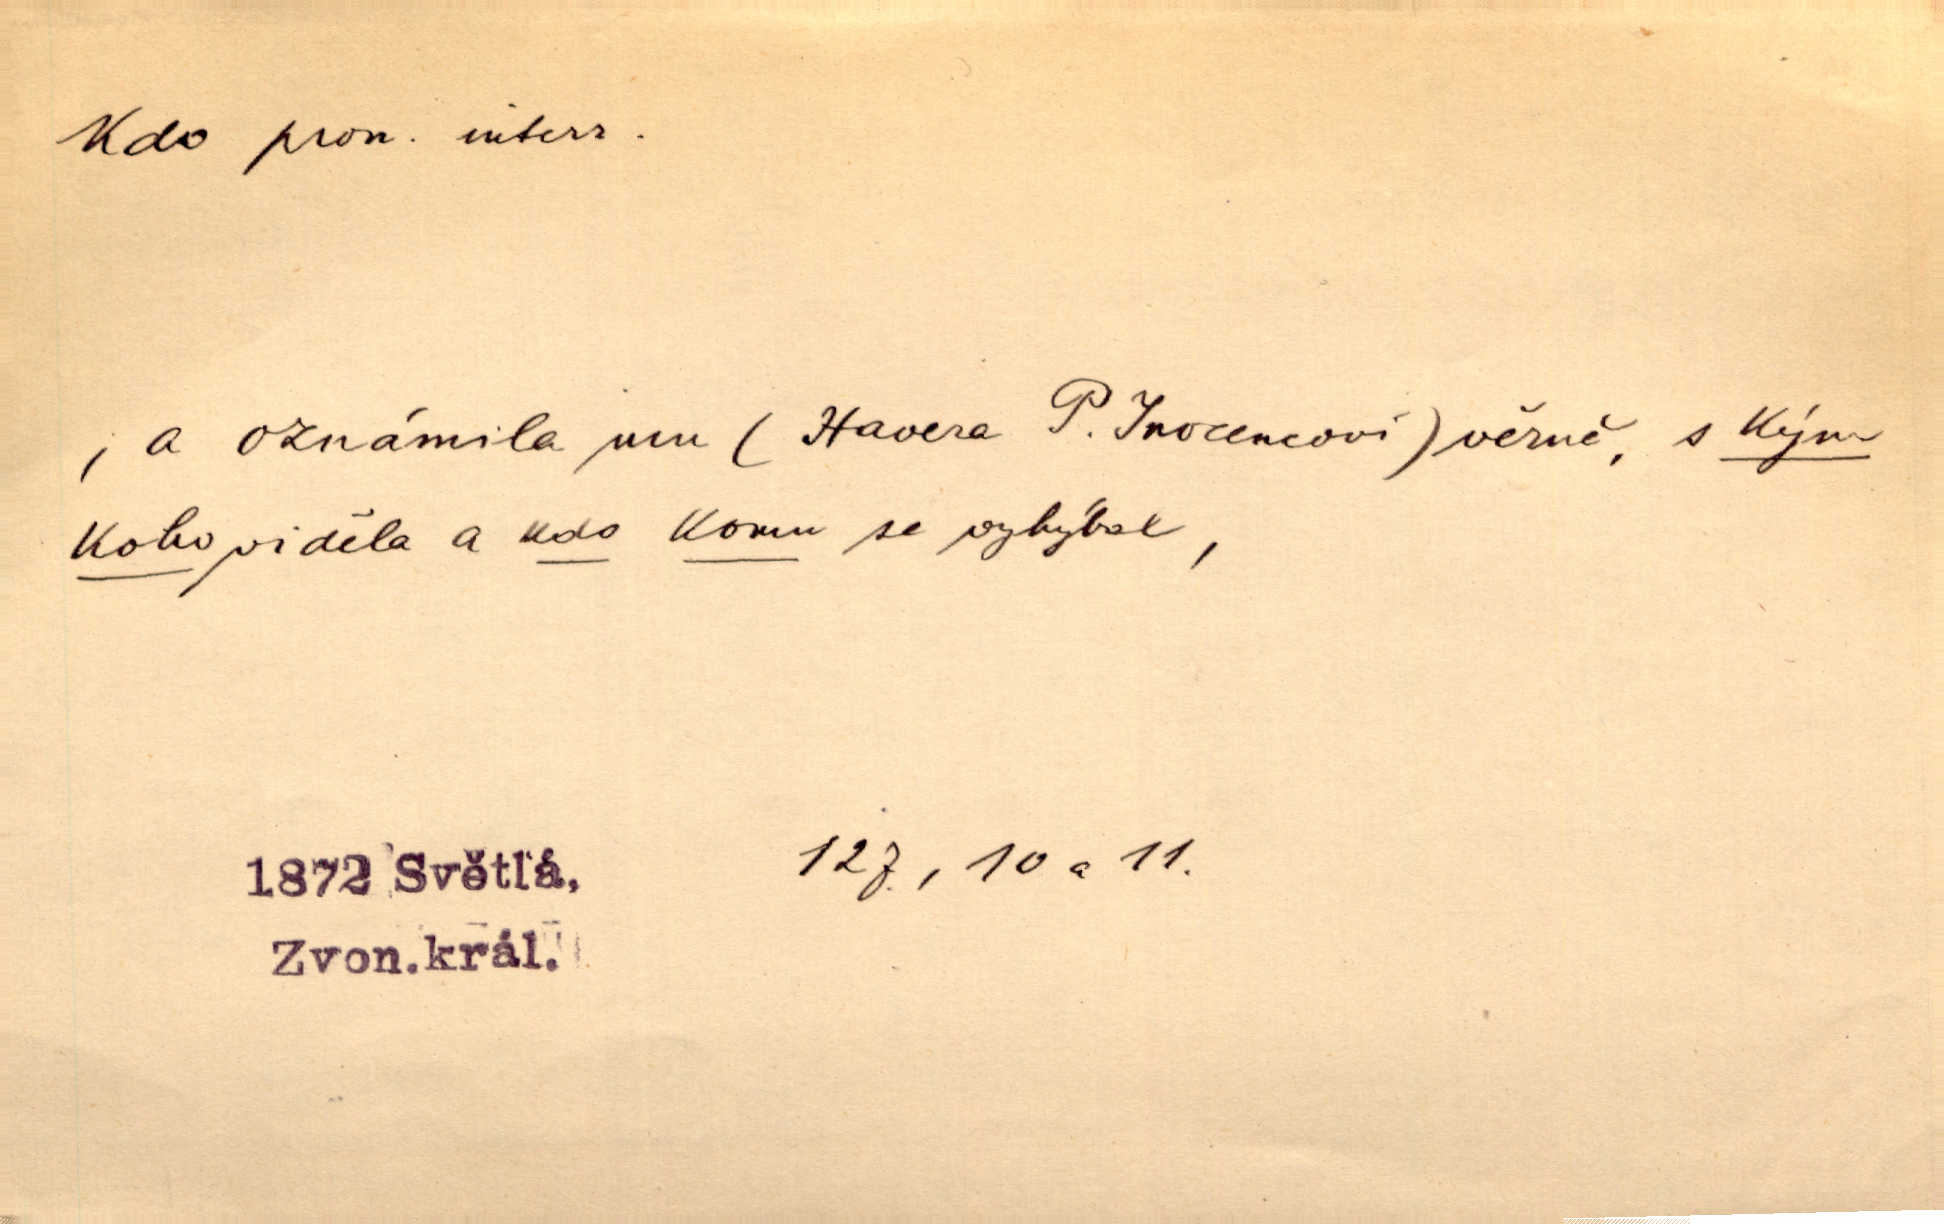 Kdo pron. interr.
, a oznámila mu (Havera P. Inocencovi) věrně, s kým
koho viděla a kdo komu se vyhýbal,
1872 Světlá, 127, 10 a 11.
Zvon.král.